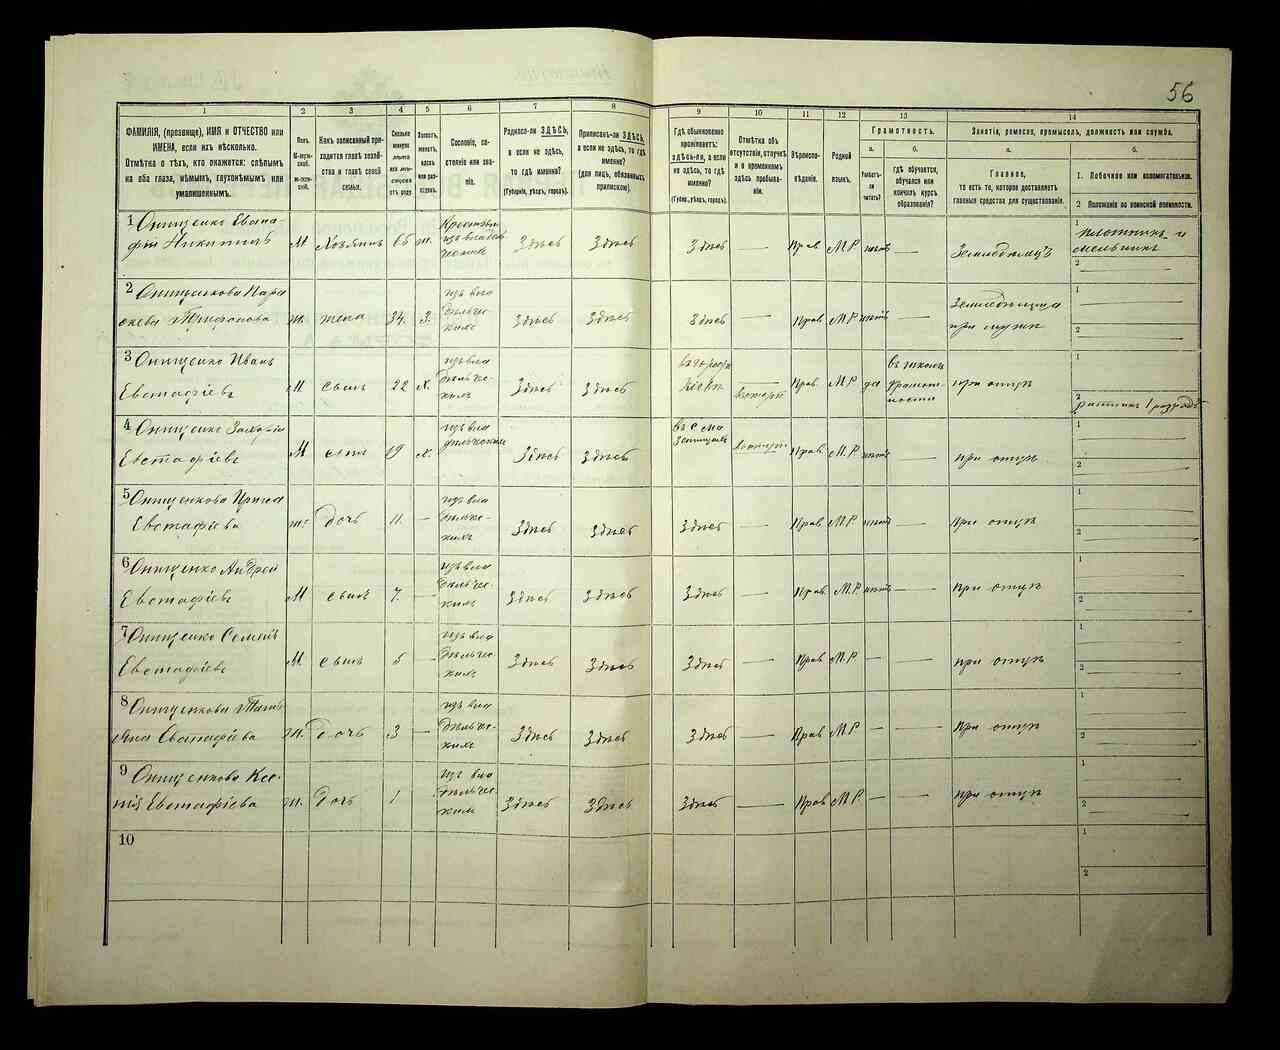 56
1 2 3 4 5 6 7 8 9 10 11 12 13 14
ФАМИЛІЯ, (прозвище), ИМЯ и ОТЧЕСТВО или
ИМЕНА, если ихъ нѣсколько.
Отмѣтка о тѣхъ, кто окажется: слѣпымъ
на оба глаза, нѣмымъ, глухонѣмымъ или
умалишеннымъ.
Полъ.
Какъ записанный при-
ходится главѣ хозяй-
ства и главѣ своей
семьи.
Сословіе, со-
стояніе или зва-
ніе.
Родился-ли ЗДѢСЬ,
а если не здѣсь,
то гдѣ именно?
(Губернія, уѣздъ, городъ).
Приписанъ-ли ЗДѢСЬ,
а если не здѣсь, то гдѣ
именно?
(для лицъ, обязанныхъ
припискою).
Гдѣ обыкновенно
проживаетъ:
здѣсь-ли, а если
не здѣсь, то гдѣ
именно?
(Губерн., уѣздъ, городъ).
Отмѣтка объ
отсутствіи, отлучкѣ
и о временномъ
здѣсь пребыва-
ніи.
Вѣроиспо-
вѣданіе.
Родной
языкъ.
Грамотность.
а.
Умѣетъ-
ли
читать?
б.
гдѣ обучается,
обучался или
кончилъ курсъ
образованія?
Занятія, ремесло, промыселъ, должность или служба.
а.
Главное,
то есть то, которое доставляетъ
главныя средства для существованія.
б.
1. Побочное или вспомогательное.
2 Положеніе по воинской повинности.
1 Онищенко Евста-
фій Никитинъ М Хозяинъ 65 ж. Крестьян изъ владѣль ческихъ Здѣсь Здѣсь Здѣсь — Прав М.Р нѣтъ — Земледѣлецъ 1 плотникъ и мельникъ 2
2 Онищенкова Пара
скева Трифонова ж. жена 34. З. изъ вла дѣльче- скихъ Здѣсь Здѣсь Здѣсь — Прав М.Р нѣтъ — Земледѣлица при мужѣ 1 2
3 Онищенко Иванъ
Евстафіевъ М сынъ 22 Х. изъ вла дѣльче- скихъ Здѣсь Здѣсь въ городѣ Кіевѣ Прав М.Р да въ школѣ грамот- ности при отцѣ 1 2 ратникъ 1 разряда
4 Онищенко Захарій
Евстафіевъ М сынъ 19 Х. изъ вла дѣльческихъ Здѣсь Здѣсь Прав М.Р. нѣтъ при отцѣ 1 2
5 Онищенкова Ирина
Евстафіева ж. дочь 11. — изъ вла дѣльче- скихъ Здѣсь Здѣсь Здѣсь — Прав М.Р. нѣтъ — при отцѣ 1 2
6 Онищенко Андрей
Евстафіевъ М сынъ 7. — изъ вла дѣльче- скихъ Здѣсь Здѣсь Здѣсь — Прав М.Р. нѣтъ — при отцѣ 1 2
7 Онищенко Семенъ
Евстафіевъ М сынъ 5 — изъ вла дѣльче- скихъ Здѣсь Здѣсь Здѣсь — Прав М.Р. — — при отцѣ 1 2
8 Онищенкова Тать
яна Евстафіева ж. дочь 3 — изъ вла дѣльче- скихъ Здѣсь Здѣсь Здѣсь — Прав М.Р. — — при отцѣ 1 2
9 Онищенкова Ксе-
нія Евстафіева ж. дочь 1 — изъ вла дѣльче- скихъ Здѣсь Здѣсь Здѣсь — Прав М.Р. — — при отцѣ 1 2
10 1 2